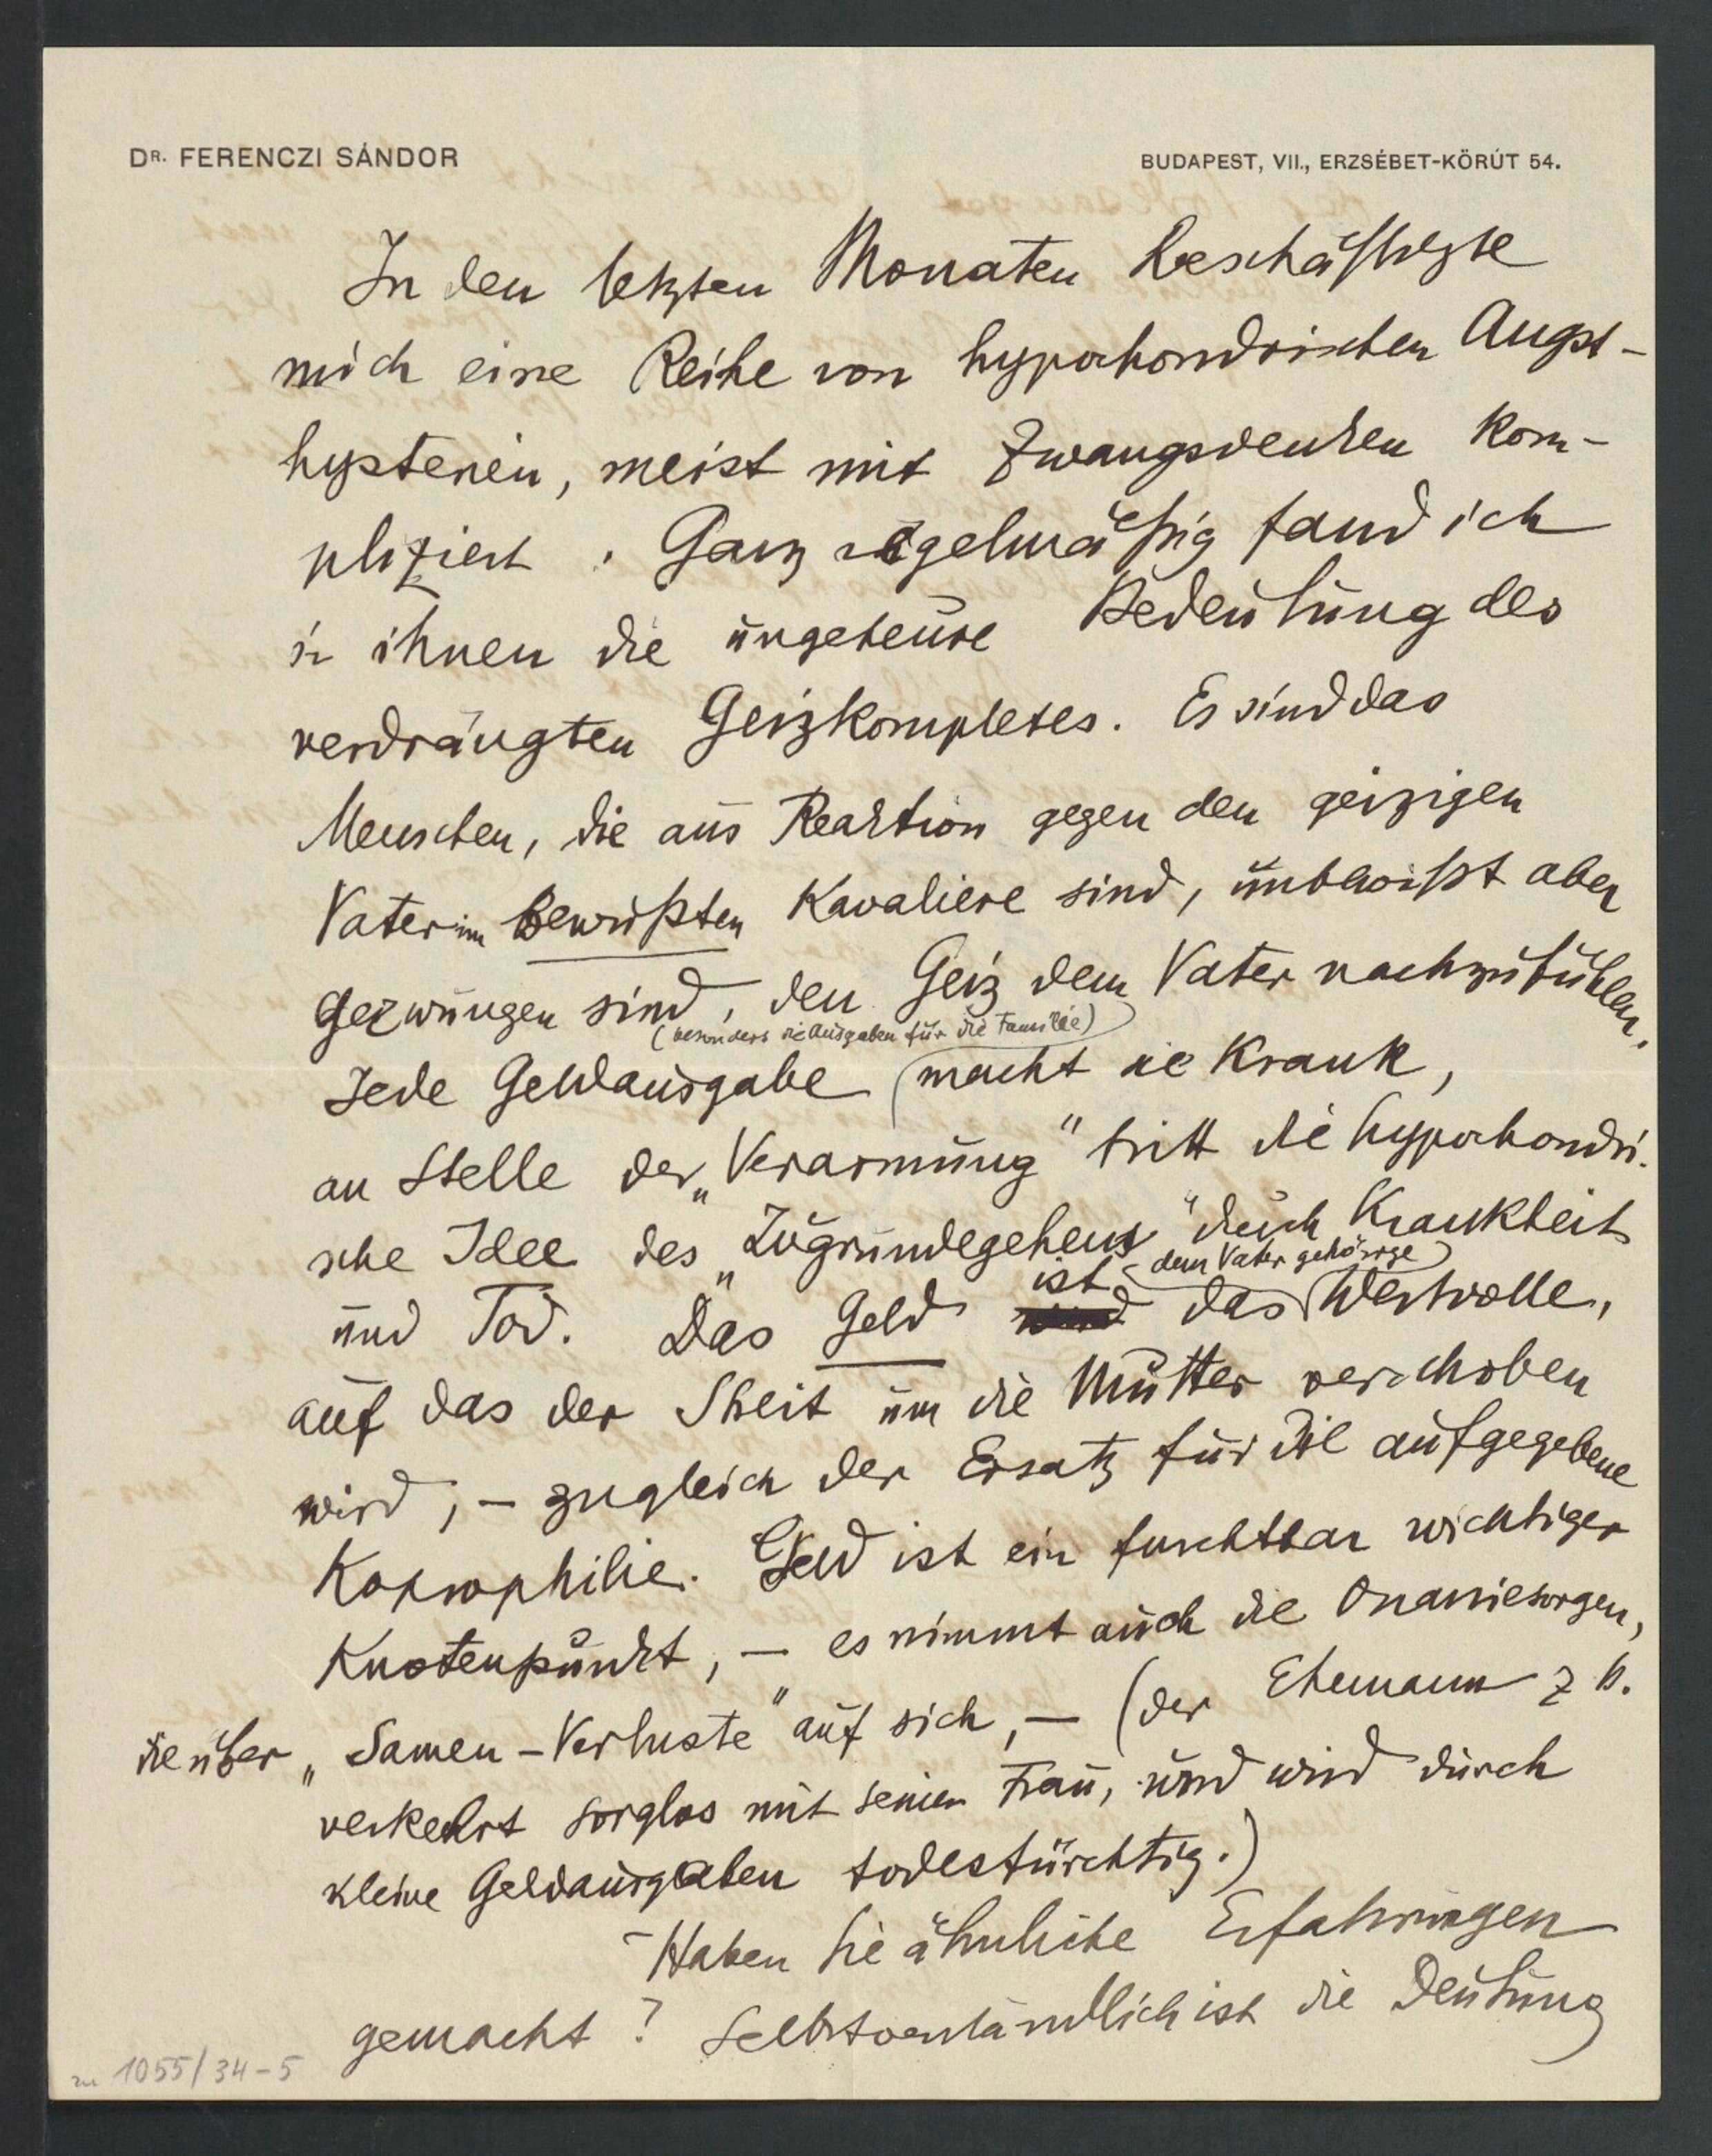 DR. FERENCZI SÁNDOR
BUDAPEST, VII., ERZSÉBET-KÖRÚT 54.
In den letzten Monaten beschäftigte
mich eine Reihe von hypochondrischen Angst-
hysterien, meist mit Zwangsdenken kom-
pliziert. Ganz regelmäßig fand ich
in ihnen die ungeheure Bedeutung des
verdrängten Geizkomplexes. Es sind das
Menschen, die aus Reaktion gegen den geizigen
Vater im bewußten Kavaliere sind, unbewußt aber
gezwungen sind, den Geiz dem Vater nachzufühlen.
(besonders die Ausgaben für die Familie)
Jede Geldausgabe macht sie krank,
an Stelle der „Verarmung" tritt die hypochondri-
sche Idee des „Zugrundegehens" durch Krankheit
ist dem Vater gehörige
und Tod. Das Geld das Wertvolle,
auf das der Streit um die Mutter verschoben
wird, – zugleich der Ersatz für die aufgegebene
Koprophilie. Geld ist ein furchtbar wichtiger
Knotenpunkt, – es nimmt auch die Onaniesorgen,
die über „Samen-Verluste" auf sich, – (der Ehemann z B.
verkehrt sorglos mit seiner Frau, und wird durch
kleine Geldausgaben todesfürchtig.)
Haben Sie ähnliche Erfahrungen
gemacht? Selbstverständlich ist die Deutung
zu 1055/34-5